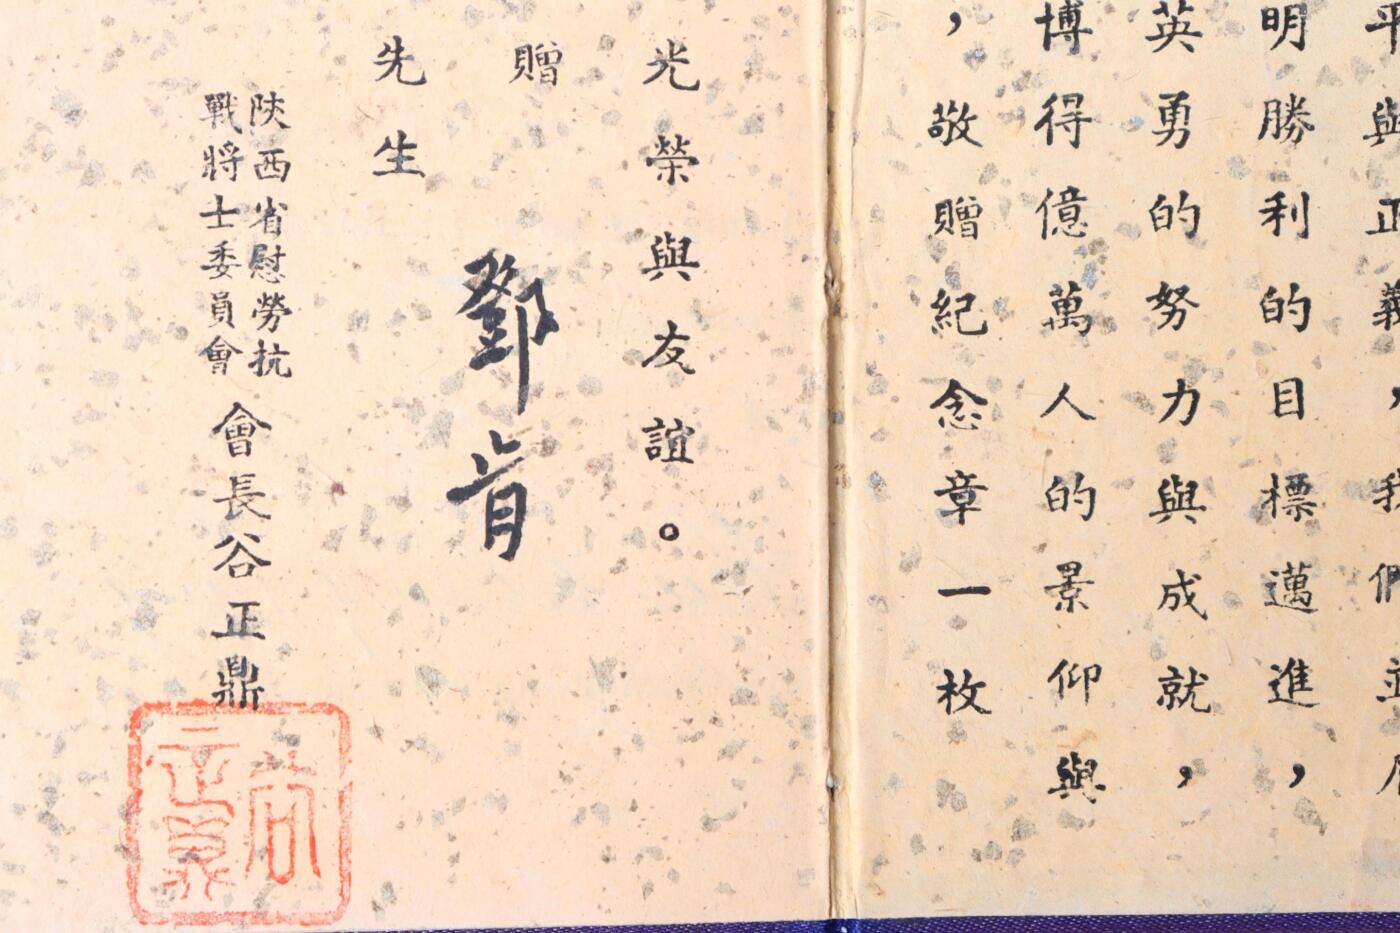 平與正義，我們並肩
明勝利的目標邁進，
英勇的努力與成就，
博得億萬人的景仰與
，敬贈紀念章一枚
光榮與友誼。
贈
鄧肯
先生
陝西省慰勞抗
戰將士委員會
會長谷正鼎
谷
正鼎